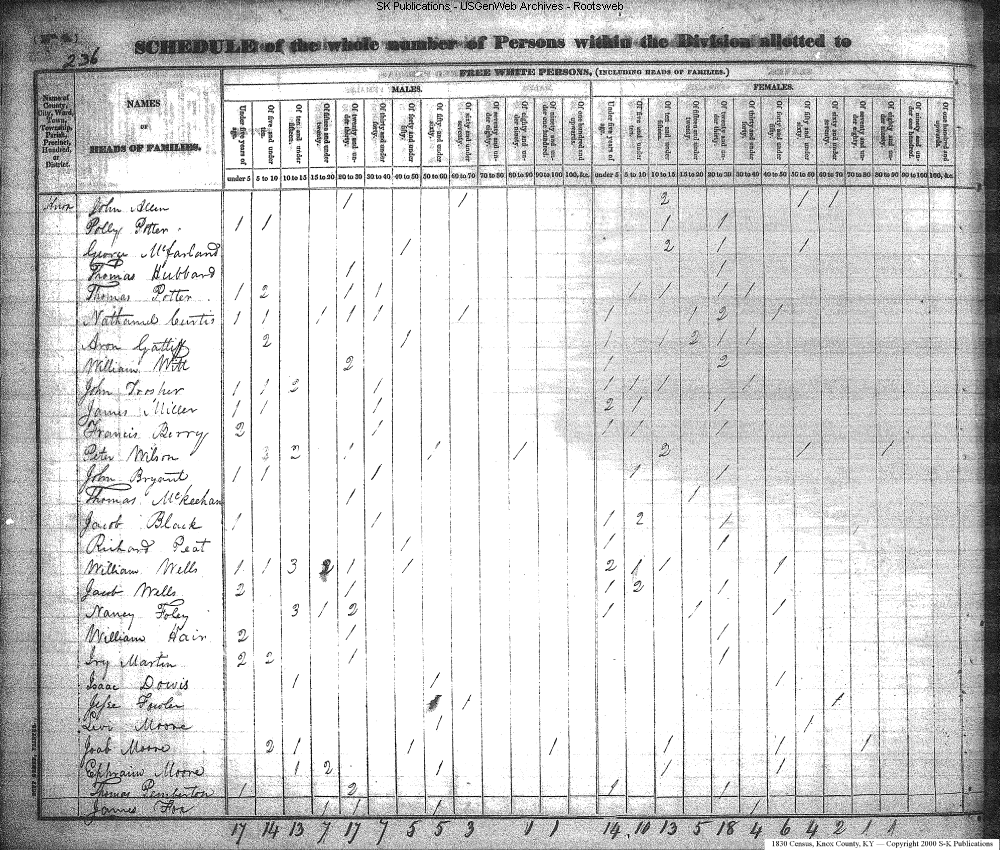 SK Publications - USGenWeb Archives - Rootsweb
236
SCHEDULE of the whole number of Persons within the Division allotted to
FREE WHITE PERSONS, (INCLUDING HEADS OF FAMILIES.)
MALES. FEMALES.
Name of County, City, Ward, Town, Township, Parish, Precinct, Hundred, or District.
NAMES
OF
HEADS OF FAMILIES.
Under five years of age. Of five and under ten. Of ten and under fifteen. Of fifteen and under twenty. Of twenty and under thirty. Of thirty and under forty. Of forty and under fifty. Of fifty and under sixty. Of sixty and under seventy. Of seventy and under eighty. Of eighty and under ninety. Of ninety and under one hundred. Of one hundred and upwards.
under 5 5 to 10 10 to 15 15 to 20 20 to 30 30 to 40 40 to 50 50 to 60 60 to 70 70 to 80 80 to 90 90 to 100 100, &c. under 5 5 to 10 10 to 15 15 to 20 20 to 30 30 to 40 40 to 50 50 to 60 60 to 70 70 to 80 80 to 90 90 to 100 100, &c.
Knox John Allen 1 1 2 1 1
Polly Potter 1 1 1 1
George McFarland 1 2 1 1
Thomas Hubbard 1 1
Thomas Potter 1 2 1 1 1 1 1 1
Nathaniel Curtis 1 1 1 1 1 1 1 1 2 1
Aron Gatliff 2 1 1 1 2 1 1
William Witt 2 1 2
John Trosher 1 1 2 1 1 1 1 1
James Miller 1 1 1 2 1 1
Francis Berry 2 1 1 1 1
Peter Wilson 2 1 1 2 1 1
John Bryant 1 1 1 1 1
Thomas McKeehan 1 1
Jacob Black 1 1 1 2 1
Richard Peat 1 1 1
William Wells 1 1 3 2 1 1 2 1 1 1
Jacob Wells 2 1 1 2 1
Nancy Foley 3 1 2 1 1 1
William Hair 2 1 1
Iry Martin 2 2 1 1
Isaac Dowis 1 1 1
Jesse Fowler 1 1
Levi Moore 1 1
Joab Moore 2 1 1 1 1 1 1
Ephraim Moore 1 2 1 1 1
Thomas Pemberton 1 2 1 1
James Fox 1 1 1 1
17 14 13 7 17 7 5 5 3 1 1 14 10 13 5 18 4 6 4 2 1 1
1830 Census, Knox County, KY — Copyright 2000 S-K Publications